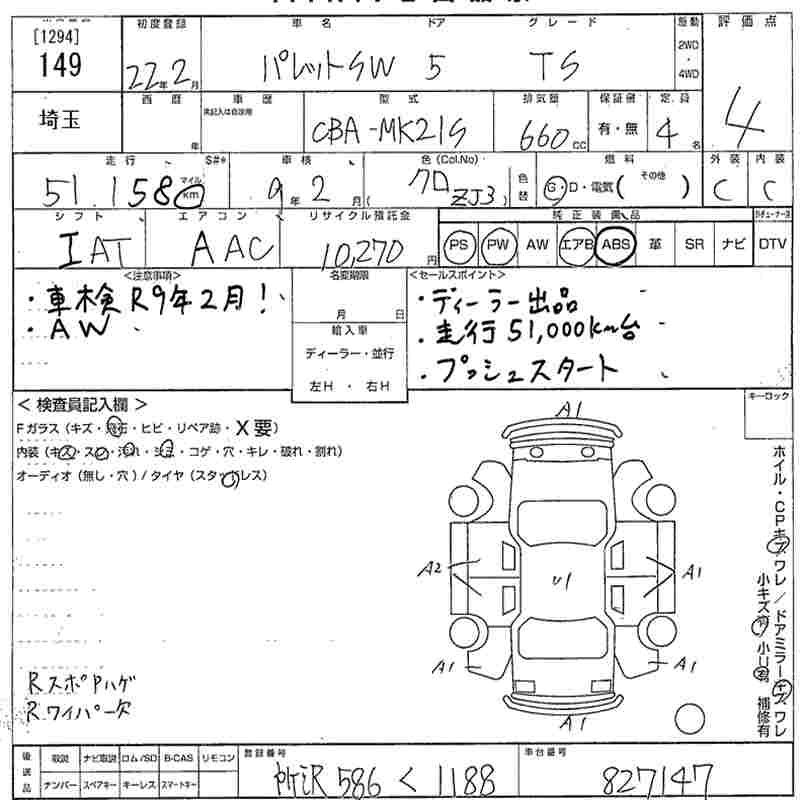 [1294]
149
初度登録
22年2月
車名 ドア グレード
パレットSW 5 TS
駆動
2WD
・
4WD
評価点
4
埼玉
西暦
年
車歴
未記入は自家用
型式
CBA-MK21S
排気量
660cc
保証書
有・無
定員
4名
走行 S#*
51,158 マイル km
車検
9年2月
色(Col.No)
クロ ZJ3
色替
燃料
G・D・電気( その他 )
外装
C
内装
C
シフト
IAT
エアコン
AAC
リサイクル預託金
10,270円
純正装備品
PS PW AW エアB ABS 革 SR ナビ DTV
<注意事項>
・車検R9年2月!
・AW
名変期限
月 日
輸入車
ディーラー・並行
左H ・ 右H
<セールスポイント>
・ディーラー出品
・走行51,000km台
・プッシュスタート
<検査員記入欄>
Fガラス(キズ・飛石・ヒビ・リペア跡・X要)
内装(キズ・スレ・汚れ・シミ・コゲ・穴・キレ・破れ・割れ)
オーディオ(無し・穴)/タイヤ(スタッドレス)
キーロック
ホイル・CPキズワレ/ドアミラーキズワレ
小キズ有 小U有 補修有
A1
A2
U1
A1
A1
A1
A1
RスポPハゲ
Rワイパー欠
後送品
取説 ナビ取説 ロム/SD B-CAS リモコン
ナンバー スペアキー キーレス スマートキー
登録番号
所沢 586 く 1188
車台番号
827147